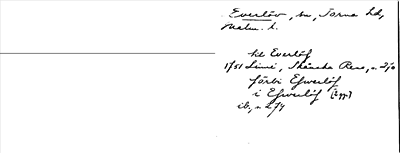 Everlöv, sn, Torna hd,
Malm. l.
til Everlöf
1751 Linné, Skånska Resa, s. 270
förbi Efwerlöf
i Efwerlöf
ib., s. 274